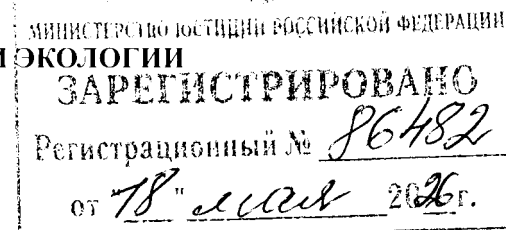 МИНИСТЕРСТВО ЮСТИЦИИ РОССИЙСКОЙ ФЕДЕРАЦИИ
И ЭКОЛОГИИ
ЗАРЕГИСТРИРОВАНО
Регистрационный № 86482
от "18" мая 2026 г.